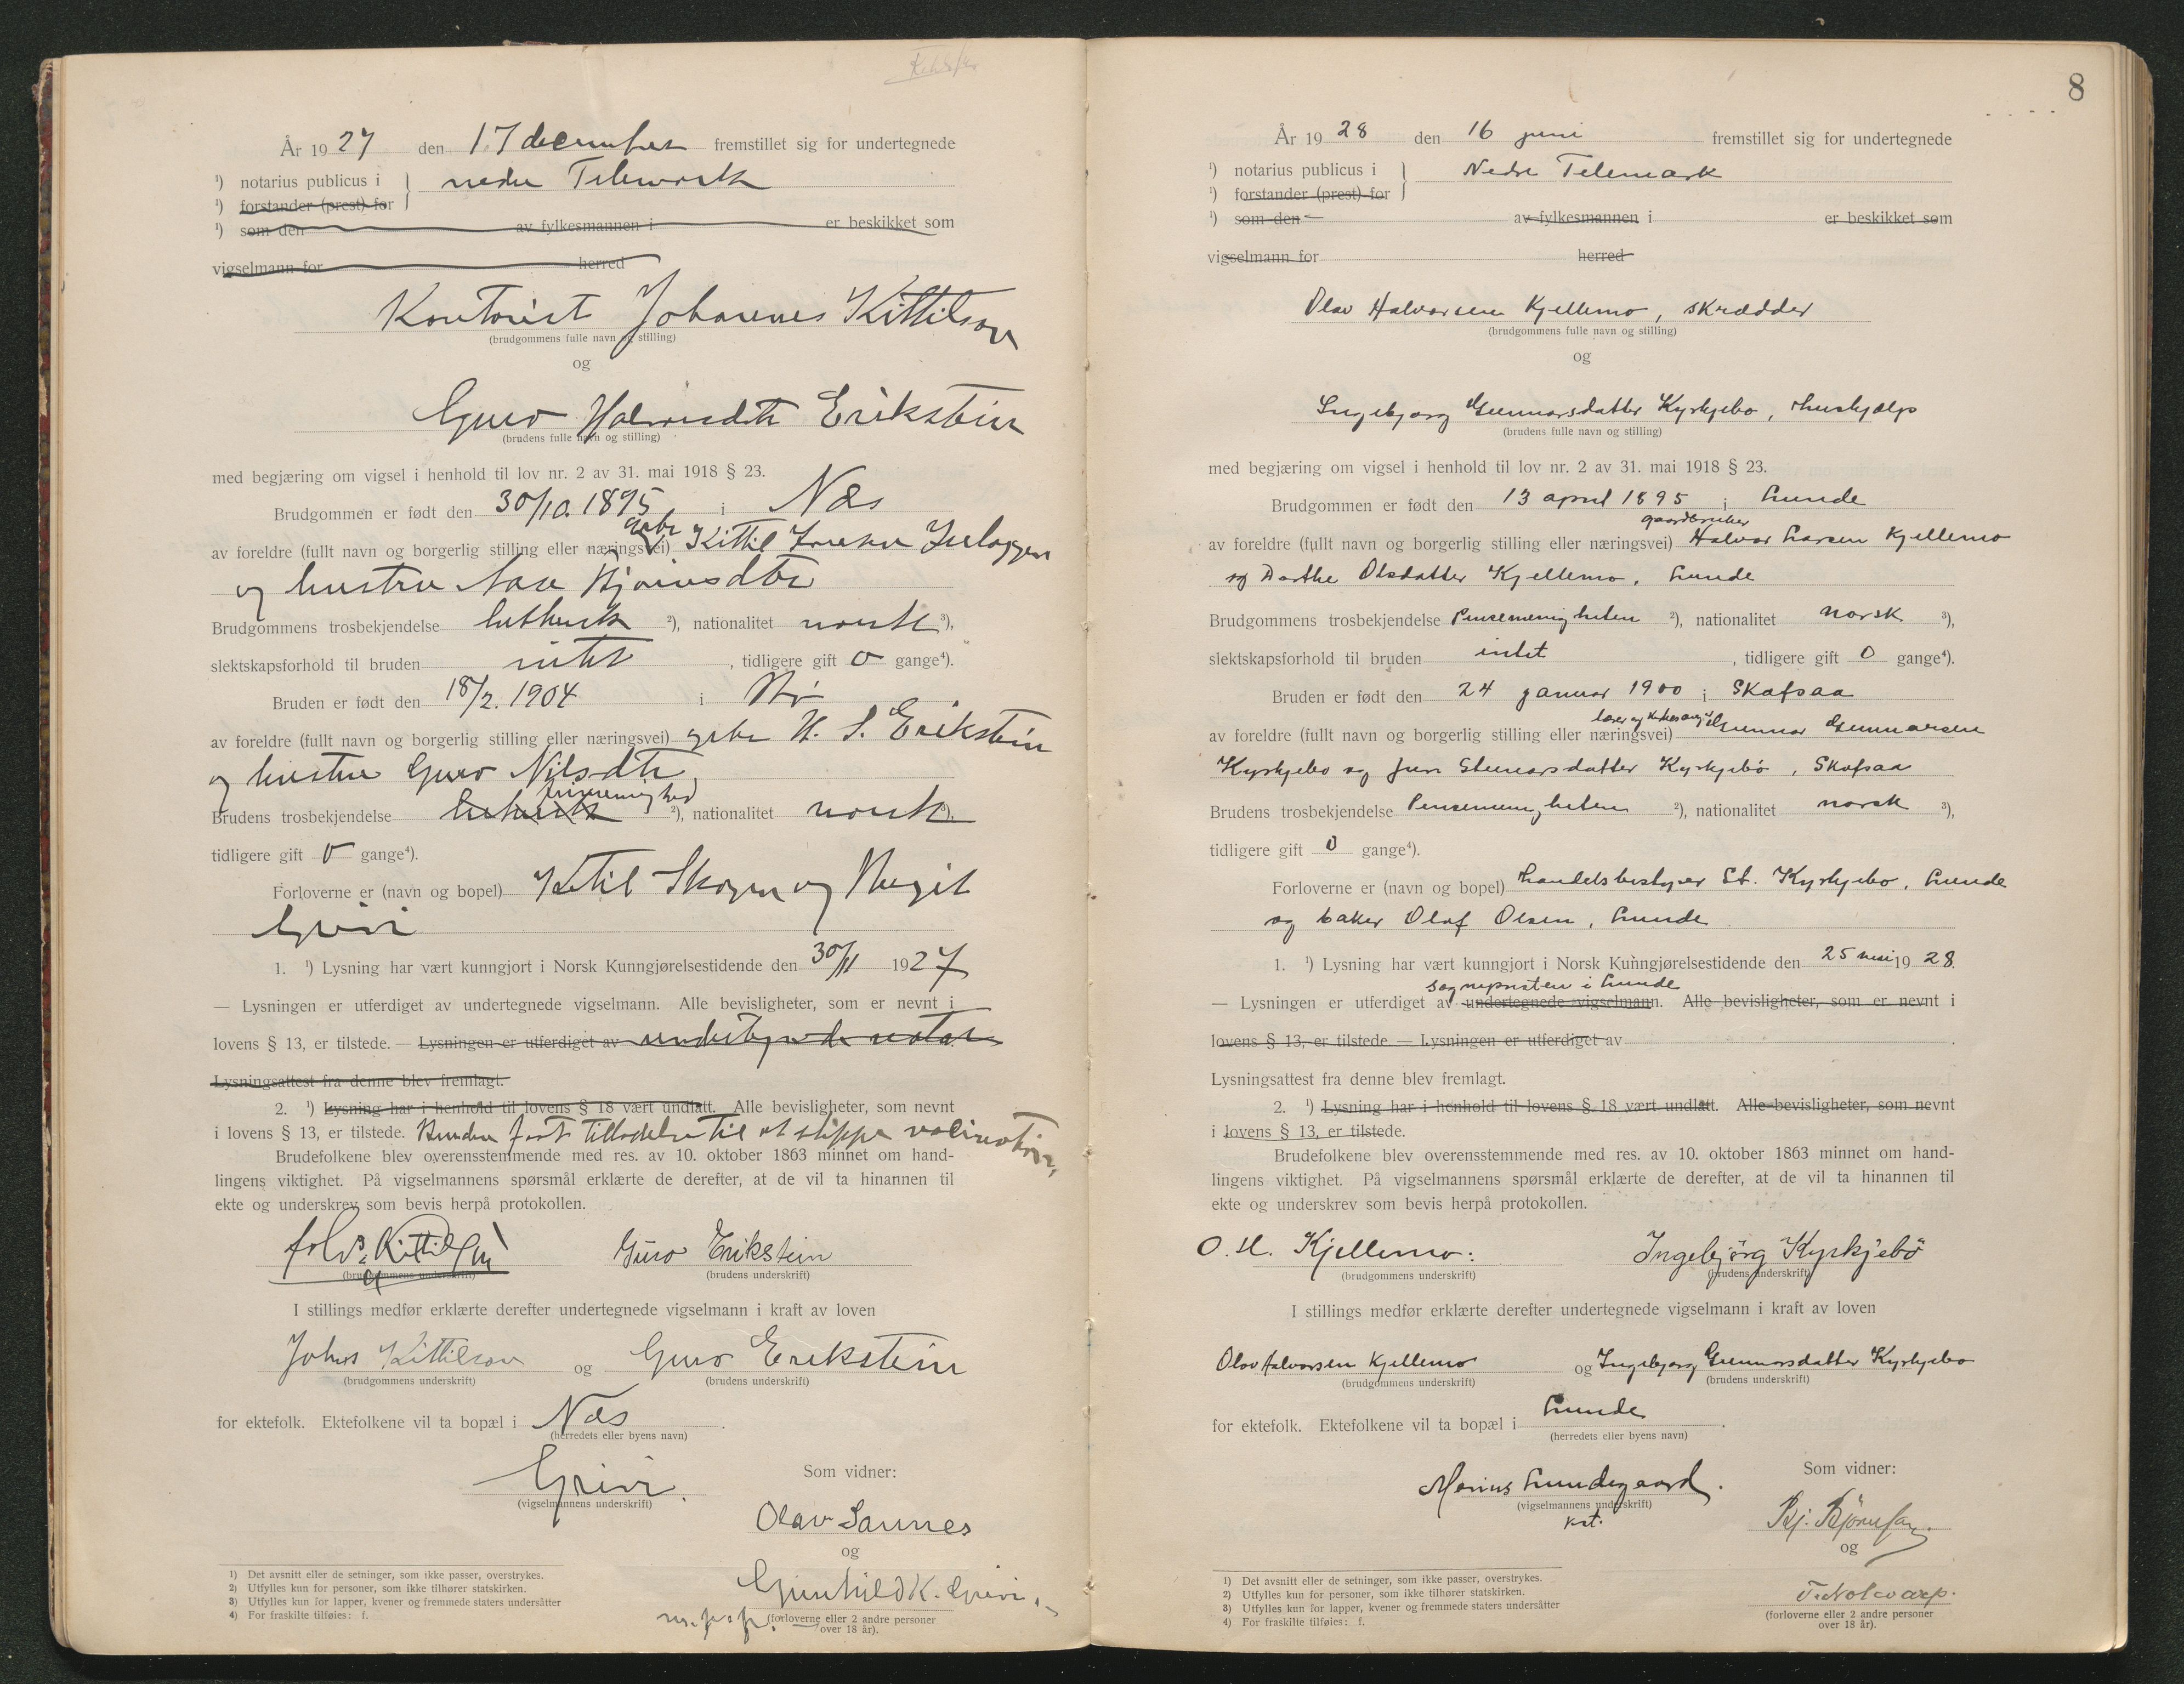 År 1927 den 17 december fremstillet sig for undertegnede
¹) notarius publicus i } nedre Telemark
¹) forstander (prest) for
¹) som den av fylkesmannen i er beskikket som
vigselmann for herred
Kontorist Johannes Kittilson
(brudgommens fulle navn og stilling)
og
Guro Halvorsdtr Erikstein
(brudens fulle navn og stilling)
med begjæring om vigsel i henhold til lov nr. 2 av 31. mai 1918 § 23.
Brudgommen er født den 30/10. 1895 i Næs
gbr
av foreldre (fullt navn og borgerlig stilling eller næringsvei) Kittil
og hustru Aase
Brudgommens trosbekjendelse luthersk ²), nationalitet norsk ³),
slektskapsforhold til bruden intet, tidligere gift 0 gange⁴).
Bruden er født den 18/2. 1904 i Bø
av foreldre (fullt navn og borgerlig stilling eller næringsvei) gbr H. S. Erikstein
og hustru Guro Nilsdtr
Brudens trosbekjendelse luthersk ²), nationalitet norsk ³),
tidligere gift 0 gange⁴).
Forloverne er (navn og bopel) Kittil Skogen og Margit
Grivi
1. ¹) Lysning har vært kunngjort i Norsk Kunngjørelsestidende den 30/11 1927
— Lysningen er utferdiget av undertegnede vigselmann. Alle bevisligheter, som er nevnt i
lovens § 13, er tilstede. — Lysningen er utferdiget av undertegnede notar
Lysningsattest fra denne blev fremlagt.
2. ¹) Lysning har i henhold til lovens § 18 vært undlatt. Alle bevisligheter, som nevnt
i lovens § 13, er tilstede. Bruden fåt tilladelse til at slippe
Brudefolkene blev overensstemmende med res. av 10. oktober 1863 minnet om hand-
lingens viktighet. På vigselmannens spørsmål erklærte de derefter, at de vil ta hinannen til
ekte og underskrev som bevis herpå protokollen.
Johs. Kittilson Guro Erikstein
(brudgommens underskrift) (brudens underskrift)
I stillings medfør erklærte derefter undertegnede vigselmann i kraft av loven
Johs Kittilson og Guro Erikstein
(brudgommens underskrift) (brudens underskrift)
for ektefolk. Ektefolkene vil ta bopæl i Næs.
(herredets eller byens navn)
Grivi.
(vigselmannens underskrift)
Som vidner:
Olav Sannes
og
Gunhild K. Grivi
(forloverne eller 2 andre personer
over 18 år).
1) Det avsnitt eller de setninger, som ikke passer, overstrykes.
2) Utfylles kun for personer, som ikke tilhører statskirken.
3) Utfylles kun for lapper, kvener og fremmede staters undersåtter
4) For fraskilte tilføies: f.
8
År 1928 den 16 juni fremstillet sig for undertegnede
¹) notarius publicus i } Nedre Telemark
¹) forstander (prest) for
¹) som den av fylkesmannen i er beskikket som
vigselmann for herred
Olav Halvorsen Kjellemo, skrædder
(brudgommens fulle navn og stilling)
og
Ingebjørg Gunnarsdatter Kyrkjebø, hushjælp
(brudens fulle navn og stilling)
med begjæring om vigsel i henhold til lov nr. 2 av 31. mai 1918 § 23.
Brudgommen er født den 13 april 1895 i Lunde
gaardbruker
av foreldre (fullt navn og borgerlig stilling eller næringsvei) Halvor Larsen Kjellemo
og Dorthe Olsdatter Kjellemo, Lunde
Brudgommens trosbekjendelse Pinsemenigheten ²), nationalitet norsk ³),
slektskapsforhold til bruden intet, tidligere gift 0 gange⁴).
Bruden er født den 24 januar 1900 i Skafsaa
lærer og kirkesanger
av foreldre (fullt navn og borgerlig stilling eller næringsvei) Gunnar Gunnarsen
Kyrkjebø og Steinarsdatter Kyrkjebø, Skafsaa
Brudens trosbekjendelse Pinsemenigheten ²), nationalitet norsk ³),
tidligere gift 0 gange⁴).
Forloverne er (navn og bopel) Handelsbestyrer St. Kyrkjebø, Lunde
og baker Olaf Olsen, Lunde
1. ¹) Lysning har vært kunngjort i Norsk Kunngjørelsestidende den 25 mai 1928.
sognepresten i Lunde
— Lysningen er utferdiget av undertegnede vigselmann. Alle bevisligheter, som er nevnt i
lovens § 13, er tilstede. — Lysningen er utferdiget av .
Lysningsattest fra denne blev fremlagt.
2. ¹) Lysning har i henhold til lovens § 18 vært undlatt. Alle bevisligheter, som nevnt
i lovens § 13, er tilstede.
Brudefolkene blev overensstemmende med res. av 10. oktober 1863 minnet om hand-
lingens viktighet. På vigselmannens spørsmål erklærte de derefter, at de vil ta hinannen til
ekte og underskrev som bevis herpå protokollen.
O. H. Kjellemo: Ingebjörg Kyrkjebö
(brudgommens underskrift) (brudens underskrift)
I stillings medfør erklærte derefter undertegnede vigselmann i kraft av loven
Olav Halvorsen Kjellemo og Ingebjørg Gunnarsdatter Kyrkjebø
(brudgommens underskrift) (brudens underskrift)
for ektefolk. Ektefolkene vil ta bopæl i Lunde.
(herredets eller byens navn)
Marius Lundegaard.
(vigselmannens underskrift)
kst.
Som vidner:
Bj. Björnsen.
og
(forloverne eller 2 andre personer
over 18 år).
1) Det avsnitt eller de setninger, som ikke passer, overstrykes.
2) Utfylles kun for personer, som ikke tilhører statskirken.
3) Utfylles kun for lapper, kvener og fremmede staters undersåtter
4) For fraskilte tilføies: f.